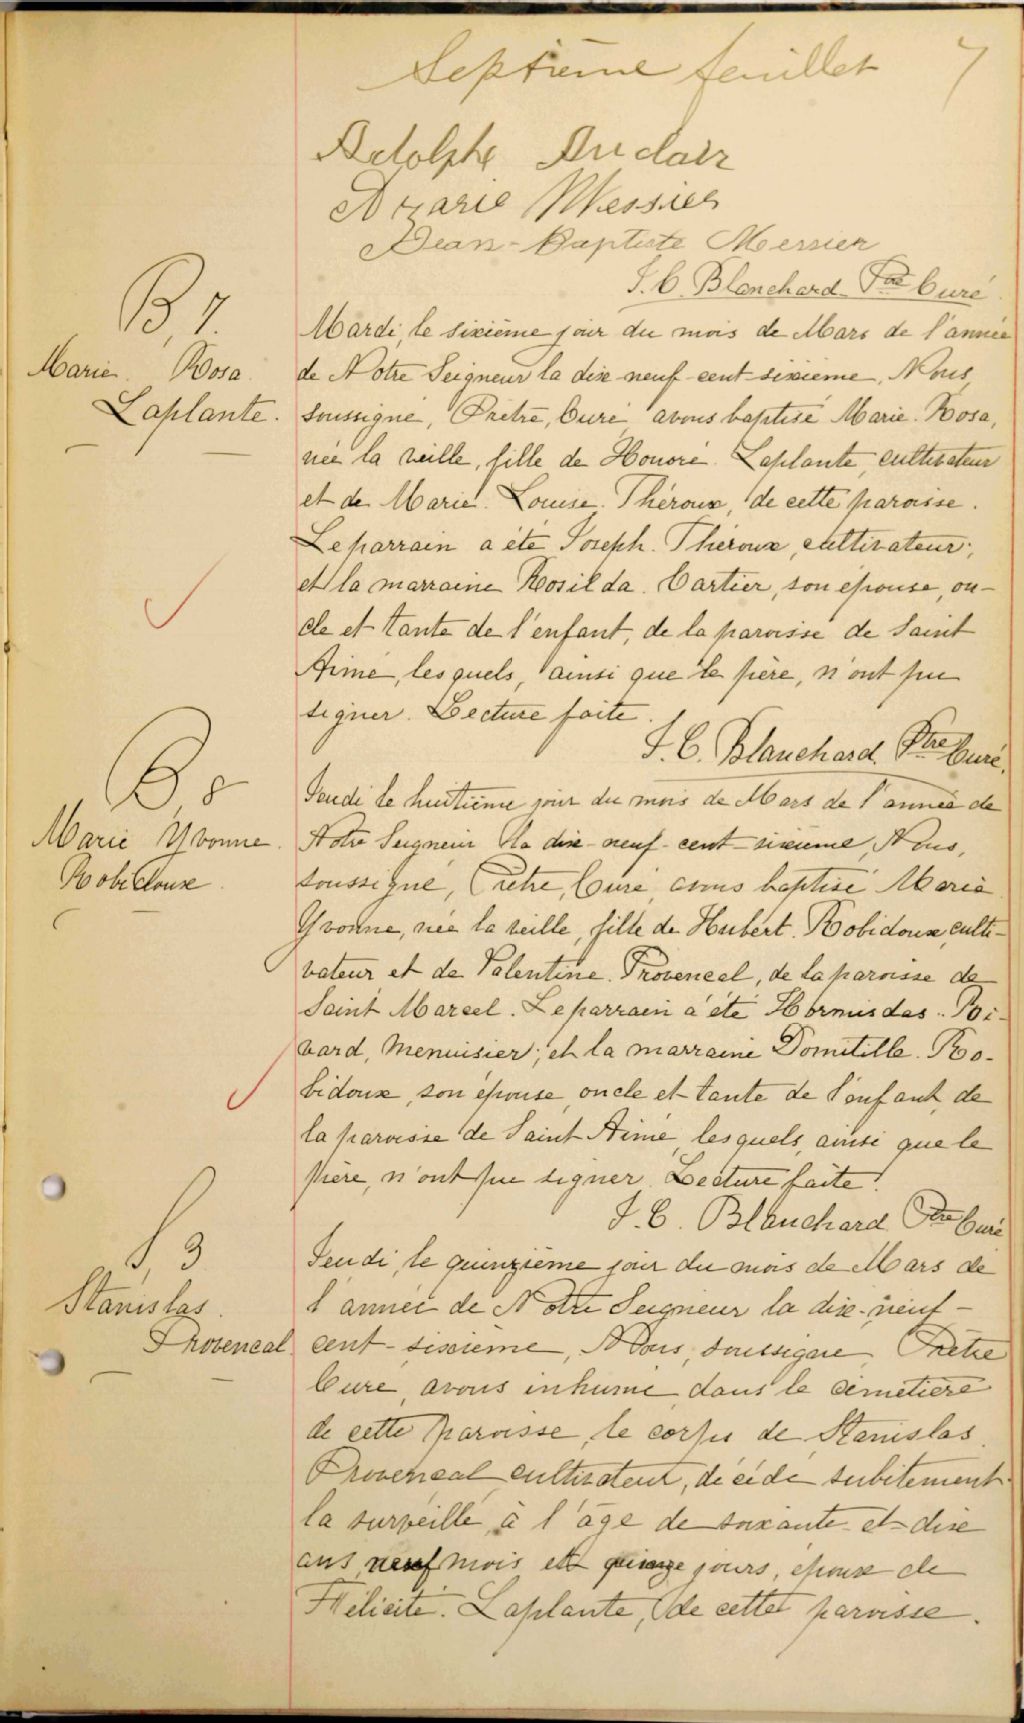 Septième feuillet 7
Adolphe Auclair
Azarie Messier
Jean-Baptiste Messier
J. C. Blanchard Ptre Curé
B, 7.
Marie. Rosa.
Laplante.
Mardi, le sixième jour du mois de Mars de l'année
de Notre Seigneur la dix-neuf-cent-sixième, Nous,
soussigné, Prêtre, Curé, avons baptisé Marie. Rosa,
née la veille, fille de Honoré. Laplante, cultivateur
et de Marie. Louise. Théroux, de cette paroisse.
Le parrain a été Joseph. Théroux, cultivateur;
et la marraine Rosilda. Cartier, son épouse, on-
cle et tante de l'enfant, de la paroisse de Saint
Aimé, lesquels, ainsi que le père, n'ont pu
signer. Lecture faite.
J. C. Blanchard. Ptre Curé.
B, 8
Marie Yvonne.
Robidoux.
Jeudi le huitième jour du mois de Mars de l'année de
Notre Seigneur la dix-neuf-cent-sixième, Nous,
soussigné, Prêtre, Curé, avons baptisé Marie
Yvonne, née la veille, fille de Hubert. Robidoux, culti-
vateur et de Valentine. Provencal, de la paroisse de
Saint Marcel. Le parrain a été Hormisdas.. Ri-
vard, menuisier; et la marraine Domitille. Ro-
bidoux, son épouse, oncle et tante de l'enfant, de
la paroisse de Saint Aimé, lesquels, ainsi que le
père, n'ont pu signer. Lecture faite.
J. C. Blanchard Ptre Curé
S, 3
Stanislas.
Provencal.
Jeudi, le quinzième jour du mois de Mars de
l'année de Notre Seigneur la dix-neuf-
cent-sixième, Nous, soussigné, Prêtre
Curé, avons inhumé dans le cimetière
de cette paroisse, le corps de Stanislas.
Provencal, cultivateur, décédé subitement
la surveille, à l'âge de soixante-et-dix
ans, neuf mois et quinze jours, époux de
Félicité. Laplante, de cette paroisse.